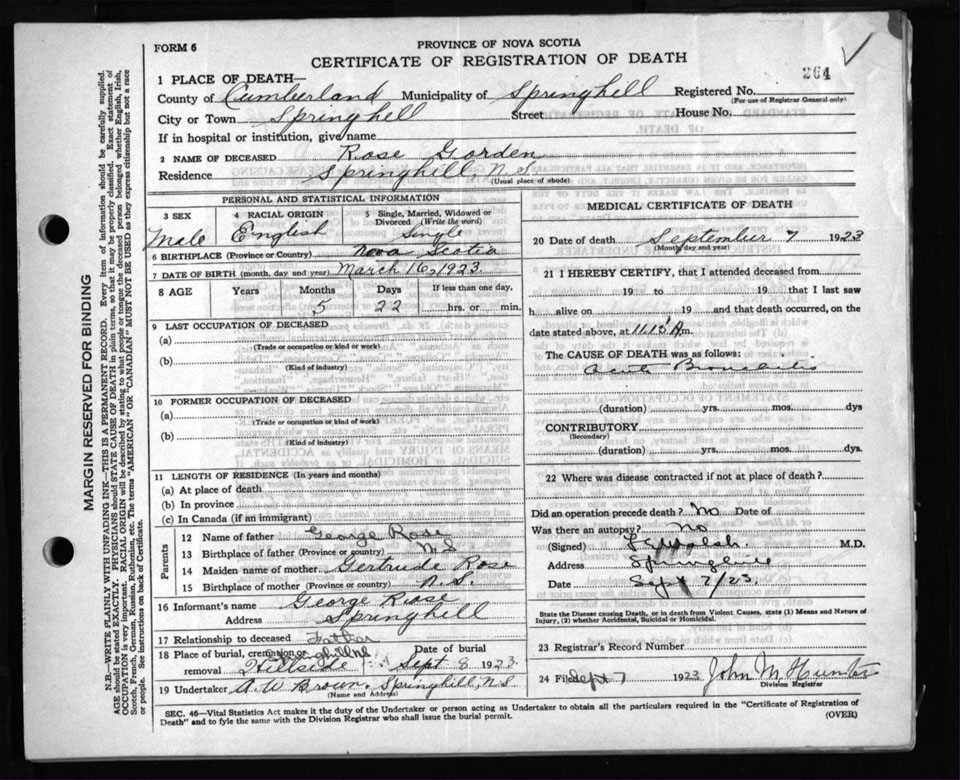 FORM 6
PROVINCE OF NOVA SCOTIA
CERTIFICATE OF REGISTRATION OF DEATH
264
1 PLACE OF DEATH—
County of Cumberland Municipality of Springhill Registered No.
(For use of Registrar General only)
City or Town Springhell Street House No.
If in hospital or institution, give name
2 NAME OF DECEASED Rose Gorden
Residence Springhill, N.S.
(Usual place of abode)
PERSONAL AND STATISTICAL INFORMATION
3 SEX 4 RACIAL ORIGIN 5 Single, Married, Widowed or Divorced (Write the word)
Male English Single
6 BIRTHPLACE (Province or Country) Nova Scotia
7 DATE OF BIRTH (month, day and year) March 16, 1923.
8 AGE Years Months Days If less than one day,
5 22 hrs. or min.
9 LAST OCCUPATION OF DECEASED
(a)
(Trade or occupation or kind or work)
(b)
(Kind of industry)
10 FORMER OCCUPATION OF DECEASED
(a)
(Trade or occupation or kind of work)
(b)
(Kind of industry)
11 LENGTH OF RESIDENCE (In years and months)
(a) At place of death
(b) In province
(c) In Canada (if an immigrant)
Parents
12 Name of father George Rose
13 Birthplace of father (Province or country) N.S
14 Maiden name of mother Gertrude Rose
15 Birthplace of mother (Province or country) N.S.
16 Informant's name George Rose
Address Springhill
17 Relationship to deceased Father
18 Place of burial, cremation or removal Hillside Date of burial Sept 8 1923.
19 Undertaker A. W. Brown, Springhill, N S
(Name and Address)
MEDICAL CERTIFICATE OF DEATH
20 Date of death September 7 1923
(Month, day and year)
21 I HEREBY CERTIFY, that I attended deceased from
19 to 19 that I last saw
h alive on 19 and that death occurred, on the
date stated above, at 11.15 A m.
The CAUSE OF DEATH was as follows:
Acute Bronchitis
(duration) yrs. mos. dys
CONTRIBUTORY
(Secondary)
(duration) yrs. mos. dys.
22 Where was disease contracted if not at place of death?
Did an operation precede death? No Date of
Was there an autopsy? No
(Signed) Walsh. M.D.
Address Springhill
Date Sept 7/23.
State the Disease causing Death, or in death from Violent Causes, state (1) Means and Nature of
Injury, (2) whether Accidental, Suicidal or Homicidal.
23 Registrar's Record Number
24 Filed Sept 7 1923 John M. Hunter
Division Registrar
SEC. 46—Vital Statistics Act makes it the duty of the Undertaker or person acting as Undertaker to obtain all the particulars required in the "Certificate of Registration of
Death" and to fyle the same with the Division Registrar who shall issue the burial permit.
(OVER)
MARGIN RESERVED FOR BINDING
N.B.—WRITE PLAINLY WITH UNFADING INK—THIS IS A PERMANENT RECORD. Every item of information should be carefully supplied.
AGE should be stated EXACTLY. PHYSICIANS should STATE CAUSE OF DEATH in plain terms, so that it may be properly classified. Exact statement of
OCCUPATION is very important. RACIAL ORIGIN will be described by stating to what people or tongue the deceased person belonged whether English, Irish,
Scotch, French, German, Russian, Ruthenian, etc. The terms "AMERICAN" OR "CANADIAN" MUST NOT BE USED as they express citizenship but not a race
or people. See instructions on back of Certificate.